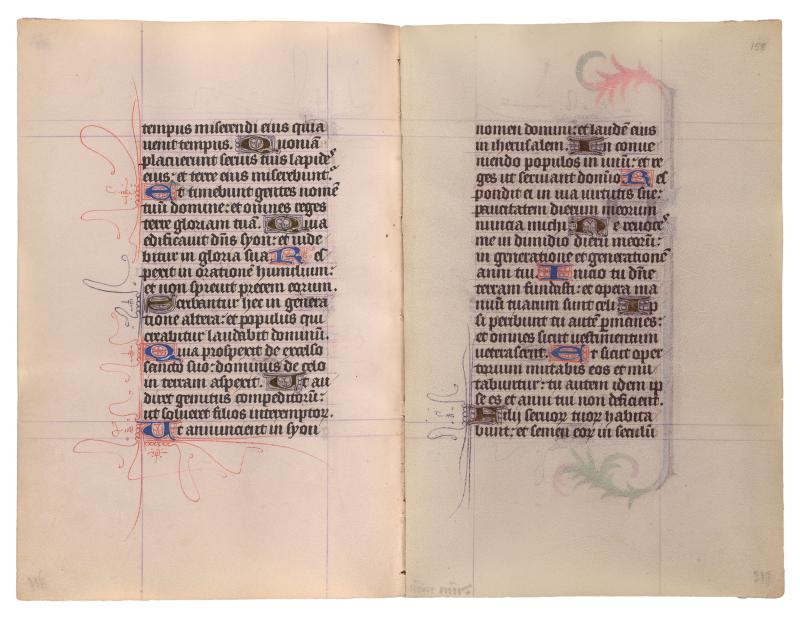 tempus miserendi eius quia
uenit tempus. Quoniā
placuerunt seruis tuis lapides
eius: et terre eius miserebunt.
Et timebunt gentes nomē
tuū domine: et omnes reges
terre gloriam tuā. Quia
edificauit dn̄s syon: et uide
bitur in gloria sua. Res
pexit in orationē humilium:
et non spreuit precem eorum.
Scribantur hec in genera
tione altera: et populus qui
creabitur laudabit dominū.
Quia prospexit de excelso
sancto suo: dominus de celo
in terram aspexit. Ut au
diret gemitus compeditorū:
ut solueret filios interemptoꝝ.
Ut annuncient in syon
158
nomen domini: et laudē eius
in iherusalem. In conue
niendo populos in unū: et re
ges ut seruiant domino. Res
pondit ei in uia uirtutis sue:
paucitatem dierum meorum
nuncia michi. Ne reuoces
me in dimidio dierū meorū:
in generatione et generationē
anni tui. Inicio tu dn̄e
terram fundasti: et opera ma
nuū tuarum sunt celi. Ip
si peribunt tu autē ꝑmanes:
et omnes sicut uestimentum
ueterascent. Et sicut oper
torium mutabis eos et mu
tabuntur: tu autem idem ip
se es et anni tui non deficient.
Filij seruoꝝ tuoꝝ habita
bunt: et semen eoꝝ in seculū